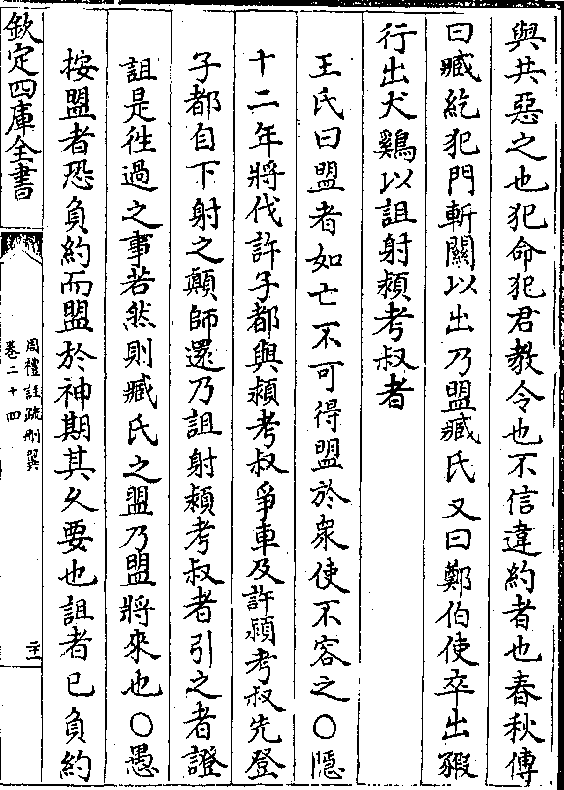 與共惡之也犯命犯君教令也不信違約者也春秋傳
曰臧紇犯門斬關以出乃盟臧氏又曰鄭伯使卒出豭
行出犬鷄以詛射潁考叔者
王氏曰盟者如亡不可得盟於衆使不容之○隱
十二年將伐許子都與潁考叔爭車及許潁考叔先登
子都自下射之顛師還乃詛射潁考叔者引之者證
詛是徃過之事若然則臧氏之盟乃盟將來也○愚
按盟者恐負約而盟於神期其久要也詛者已負約
欽定四庫全書
周禮註疏刪翼
卷二十四
二十一